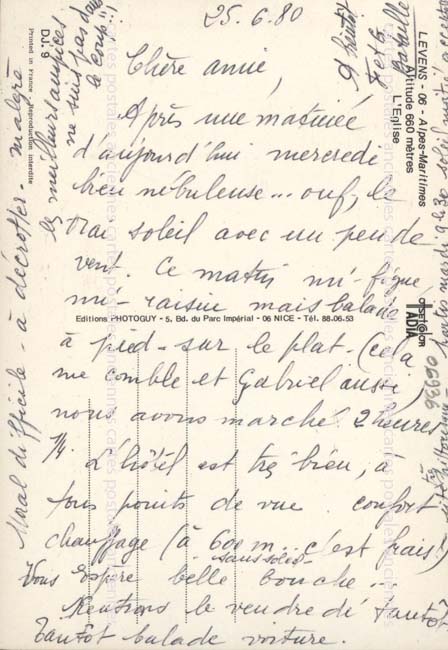 25.6.80
Chère amie,
Après une matinée
d'aujourd'hui mercredi
bien nébuleuse... ouf, le
vrai soleil avec un peu de
vent. Ce matin mi-figue,
mi-raisin mais balade
à pied - sur le plat (cela
me comble et Gabriel aussi)
nous avons marché 2 heures
1/4.
L'hôtel est très bien, à
tous points de vue confort
chauffage (à 600 m... c'est frais)
sans soleil
Vous espère belle bouche...
Rentrons le vendredi tantôt
Tantôt balade voiture.
Mal difficile - à décrotter - malgré
les meilleurs auspices
ne suit pas dans
le coup !!!
A bientôt
LEVENS - 06 - Alpes-Maritimes
Altitude 660 mètres
L'Eglise
Editions PHOTOGUY - 5, Bd. du Parc Impérial - 06 NICE - Tél. 88.06.53
TADIA
DJ. 9
Printed in France - Reproduction interdite
06690